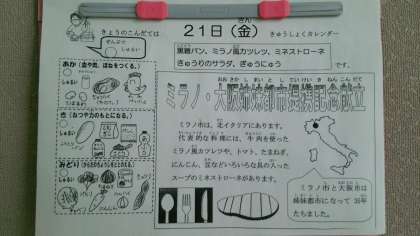 21日（金）
きゅうしょくカレンダー
きょうのこんだては
ぜんぶで
しゅるい
です。
黒糖パン、ミラノ風カツレツ、ミネストローネ
きゅうりのサラダ、ぎゅうにゅう
あか（血や肉、ほねをつくる。）
しゅるい
き（ねつや力のもとになる。）
しゅるい
みどり
しゅるい
おおさか しまいとしていけいきねんこんだて
ミラノ・大阪姉妹都市提携記念献立
ミラノ市は、北イタリアにあります。
代表的な料理には、牛肉を使った
ミラノ風カツレツや、トマト、たまねぎ、
にんにん、豆などいろいろな具の入った
スープのミネストローネがあります。
ミラノ市と大阪市は
姉妹都市になって 35年
たちました。